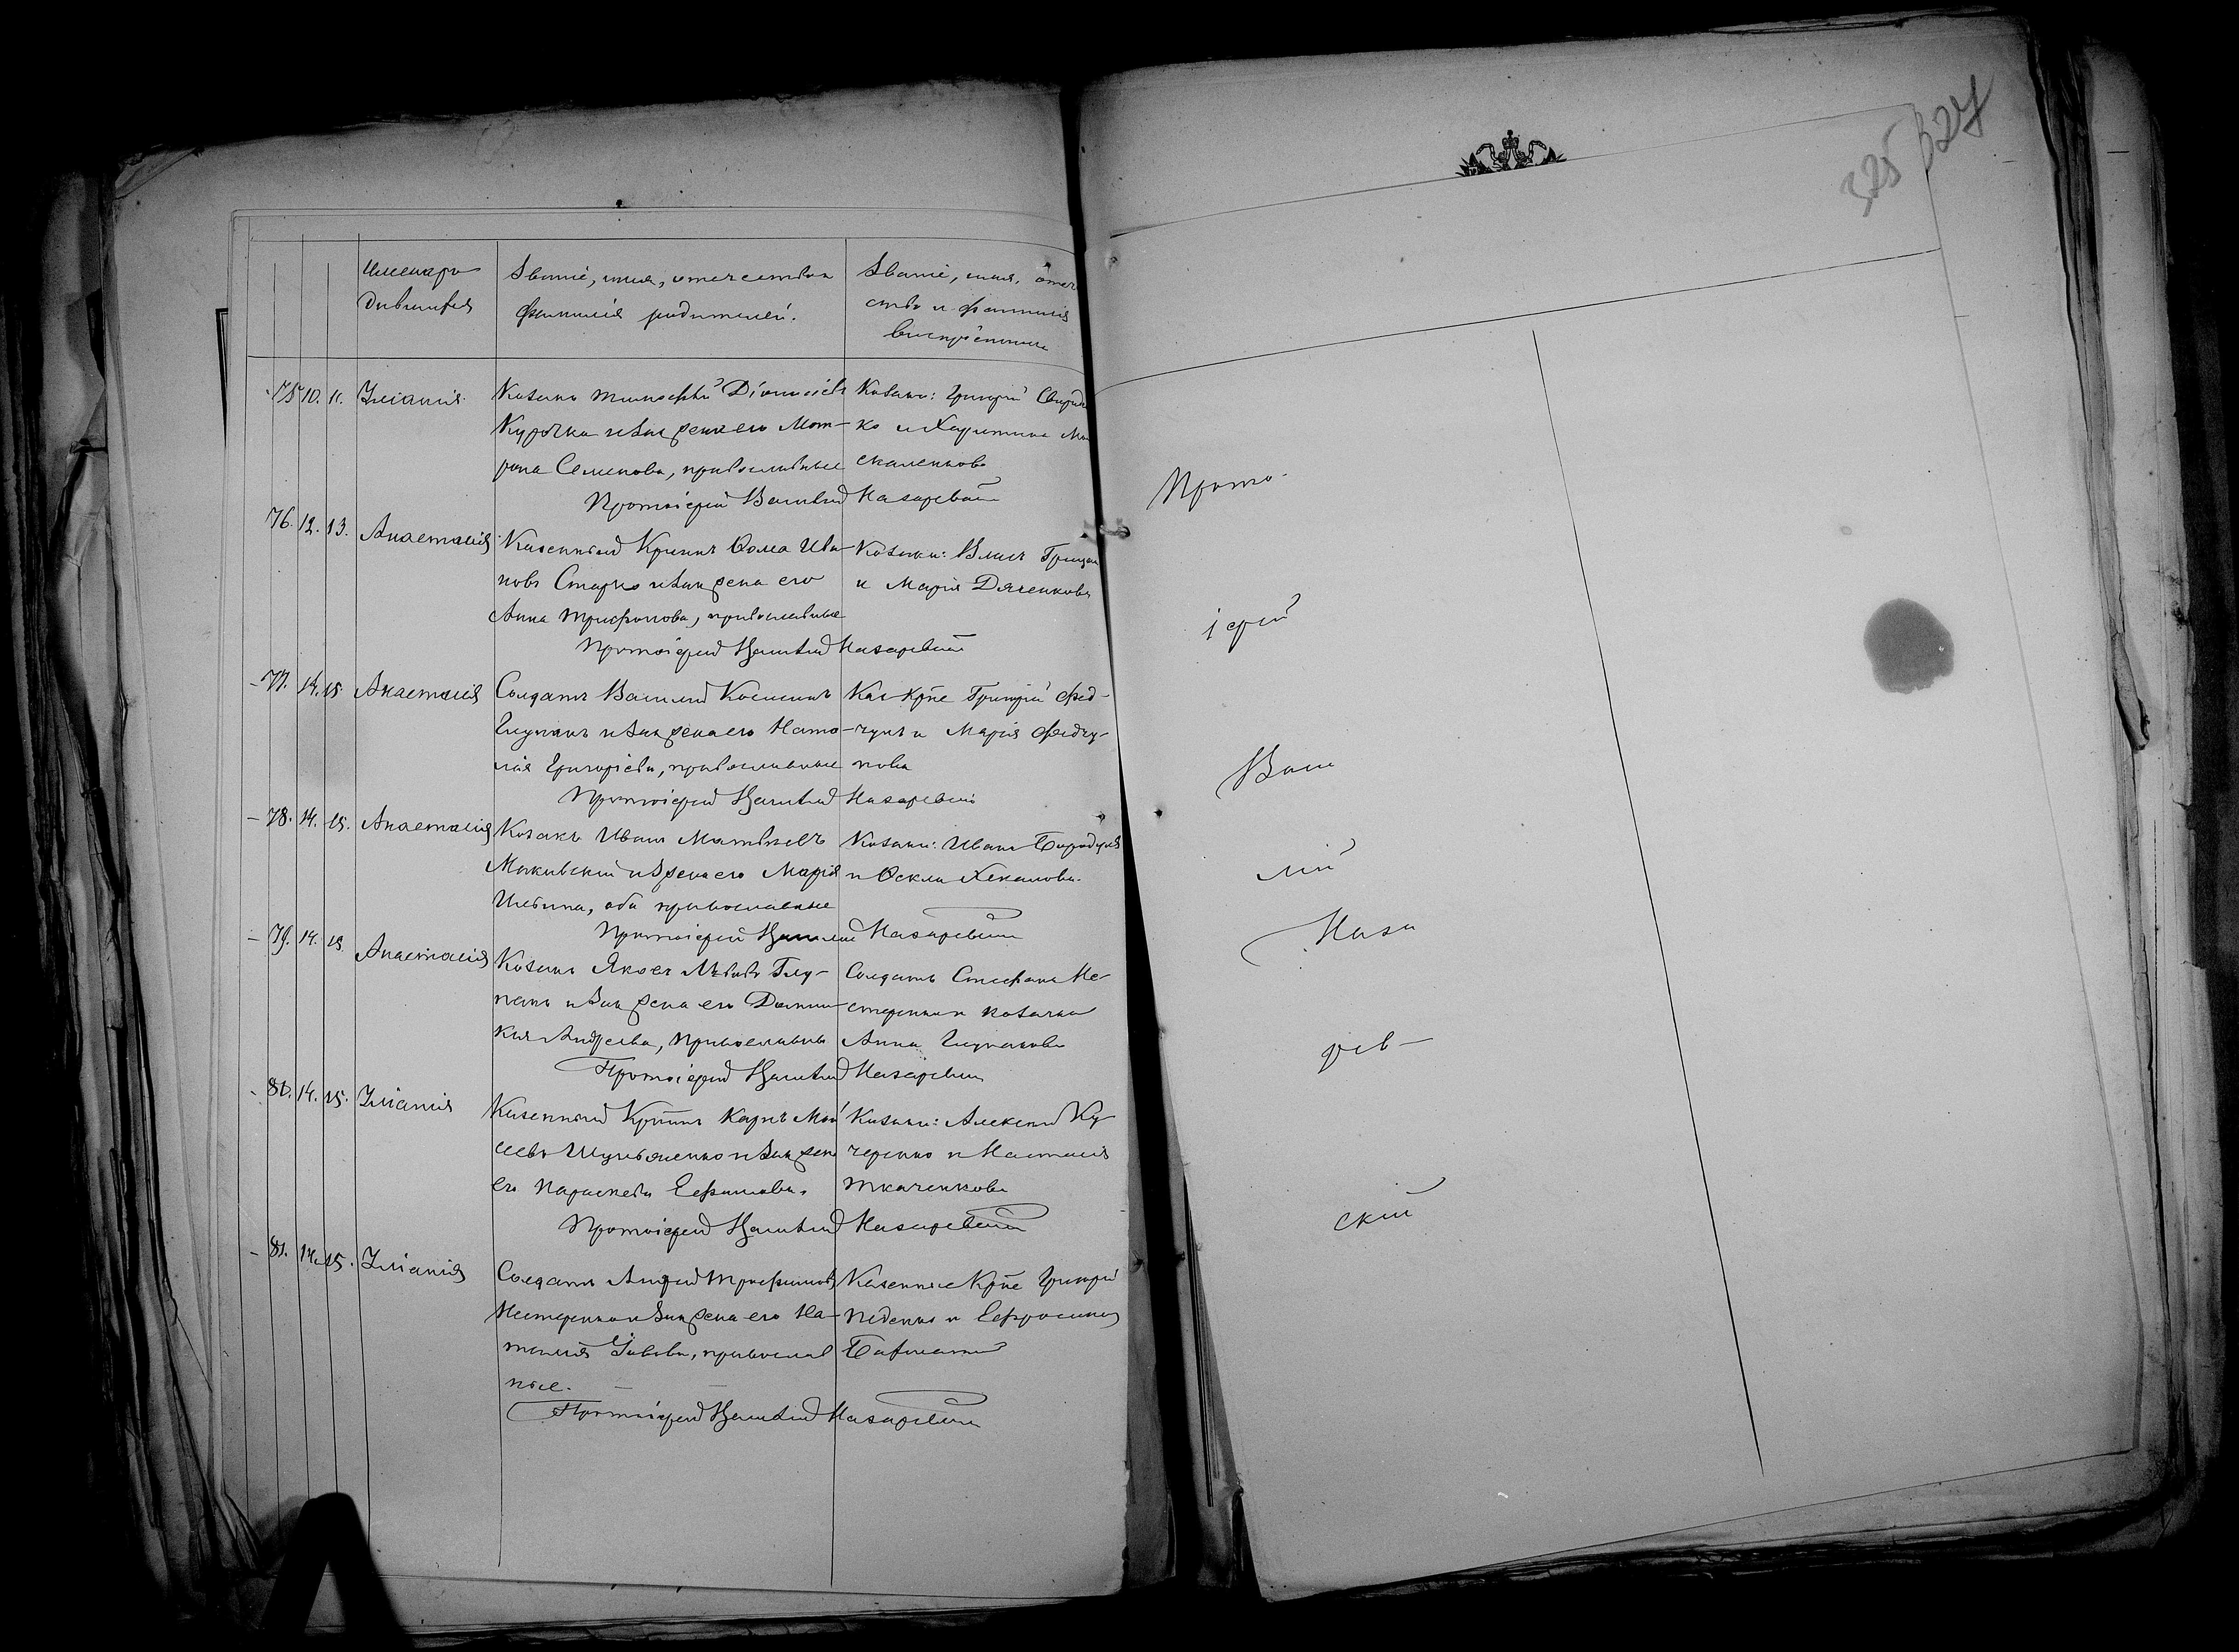 Имена ро
дившихся
Званіе, имя, отчество и
фамилія родителей.
Званіе, имя, отче
ство и фамилія
воспріемник
75 10. 11. Іуліанія
Козакъ Тимофей Діонисіевъ
Курочка и зак. жена его Мот-
рона Семенова, православные
Козаки: Григорій Свирид
ко и Харитина Мо
скаленкова
Протоіерей Василій Назаревскій
76. 12. 13. Анастасія
Казенный Крпинъ Ѳома Ива-
новъ Старко и зак. жена его
Анна Трифонова, православные
Козаки: Власъ Грицан
и Марія Дяченкова
Протоіерей Василій Назаревскій
77. 14. 15. Анастасія
Солдатъ Василій Косминъ
Глупакъ и зак. жена его Ната-
лія Григоріева, православные
Каз. Крпе Григорій Фед-
чунъ и Марія Федчу-
нова
Протоіерей Василій Назаревскій
78. 14. 15. Анастасія
Козакъ Иванъ Матвѣевъ
Макивскій и жена его Марія
Ильина, оба православные
Козаки: Иванъ Бородуля
и Ѳекла Хекалова
Протоіерей Василій Назаревскій
79. 14. 15. Анастасія
Козакъ Яковъ Глу-
пакъ и зак. жена его Домни-
кія Андреева, православные
Солдатъ Стефанъ Не-
стеренко и козачка
Анна Глупакова
Протоіерей Василій Назаревскій
80. 14. 15. Іуліанія
Казенный Крпинъ Карпъ Мои
сеевъ Шульженко и зак. жена
его Параскева Ефимова.
Козаки: Алексей Ку
черенко и Настасія
Ткаченкова
Протоіерей Василій Назаревскій
81. 14. 15. Іуліанія
Солдатъ Андрей Трофимовъ
Нестеренко и зак. жена его На-
талія Іовова, православ
ные.
Казенные Крпе Григорій
Педенко и Евфросинія
Протоіерей Василій Назаревскій
325 327
Прото-
іерей
Васи
лій
Наза
рев-
скій